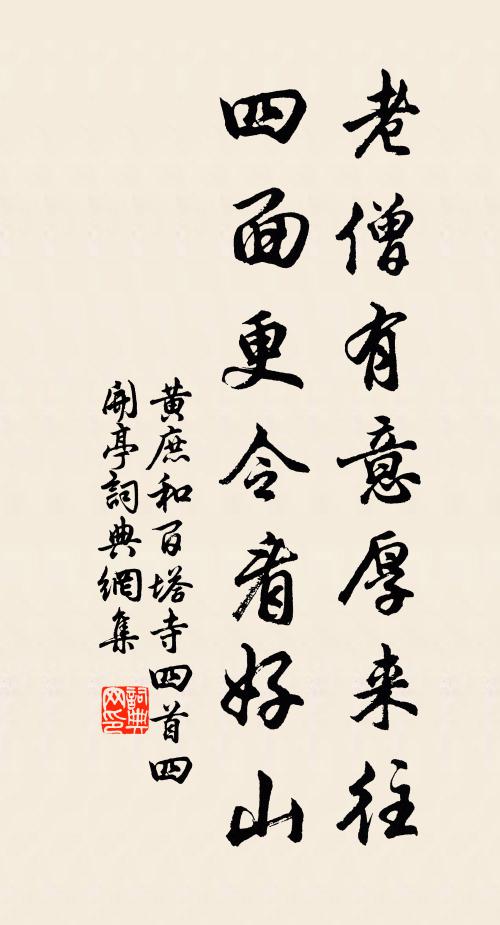 老僧有意厚来往
四面更令看好山
黄庶和百塔寺四首四
開亭詞典網集
詞典
网印